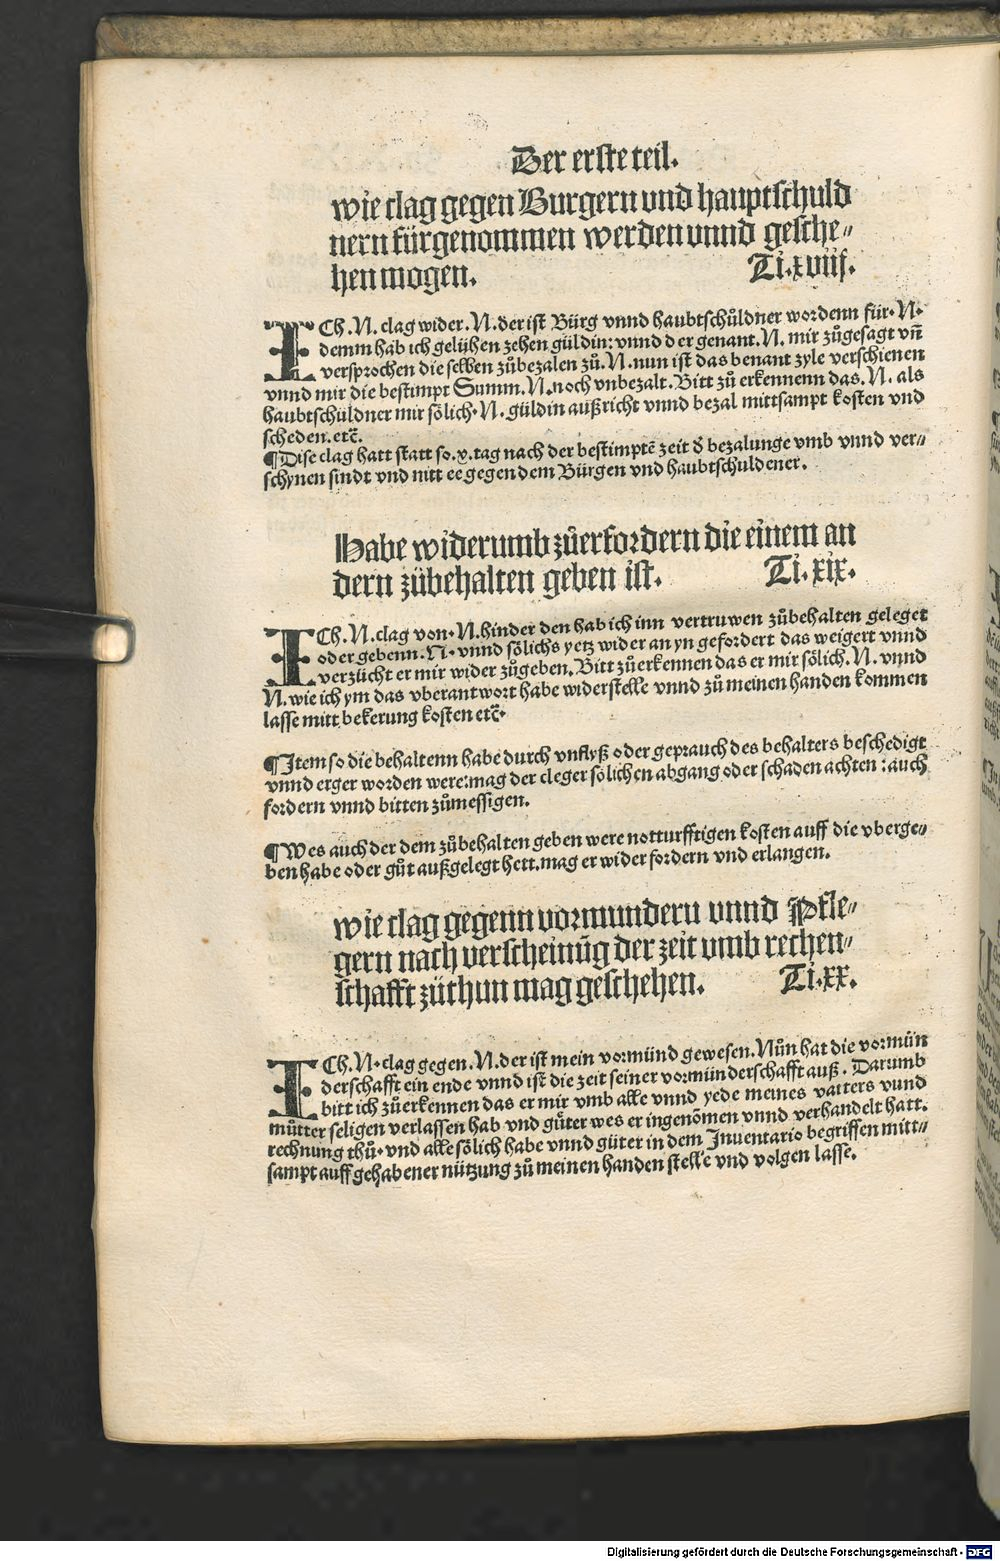 Der erste teil.
wie clag gegen Burgern vnd hauptschuld
nern fürgenommen werden vnnd gesche⸗
hen mogen. Ti.xviij.
ICh.N.clag wider.N.der ist Bürg vnnd haubtschůldner wordenn für.N.
demm hab ich gelühen zehen güldin: vnnd der genant.N. mir zůgesagt vñ
versprochen die selben zůbezalen zů.N.nun ist das benant zyle verschienen
vnnd mir die bestimpt Summ.N.noch vnbezalt.Bitt zů erkennenn das.N. als
haubtschuldner mir sölich.N. güldin außricht vnnd bezal mittsampt kosten vnd
scheden.etc̃.
¶Dise clag hatt statt so.v.tag nach der bestimptẽ zeit d̕ bezalunge vmb vnnd ver⸗
schynen sindt vnd nitt ee gegen dem Bürgen vnd haubtschuldener.
Habe widerumb zůerfordern die einem an
dern zübehalten geben ist. Ti.xix.
ICh.N.clag von.N.hinder den hab ich inn vertruwen zůbehalten geleget
oder gebenn.N.vnnd sölichs yetz wider an yn gefordert das weigert vnnd
verzücht er mir wider zůgeben.Bitt zůerkennen das er mir sölich.N. vnnd
N.wie ich ym das vberantwort habe widerstelle vnnd zů meinen handen kommen
lasse mitt bekerung kosten etc̃.
¶Item so die behaltenn habe durch vnflyß oder geprauch des behalters beschedigt
vnnd erger worden were:mag der cleger sölichen abgang oder schaden achten:auch
fordern vnnd bitten zůmessigen.
¶Wes auch der dem zůbehalten geben were notturfftigen kosten auff die vberge⸗
ben habe oder gůt außgelegt hett.mag er wider fordern vnd erlangen.
wie clag gegenn vormundern vnnd Pfle⸗
gern nach verscheinũg der zeit vmb rechen⸗
schafft züthun mag geschehen. Ti.xx.
ICh.N.clag gegen.N.der ist mein vormünd gewesen.Nůn hat die vormün
derschafft ein ende vnnd ist die zeit seiner vormünderschafft auß. Darumb
bitt ich zůerkennen das er mir vmb alle vnnd yede meines vatters vnnd
můtter seligen verlassen hab vnd gůter wes er ingenõmen vnnd verhandelt hatt.
rechnung thů.vnd alle sölich habe vnnd güter in dem Inuentario begriffen mitt⸗
sampt auffgehabener nützung zů meinen handen stelle vnd volgen lasse.
Digitalisierung gefördert durch die Deutsche Forschungsgemeinschaft - DFG